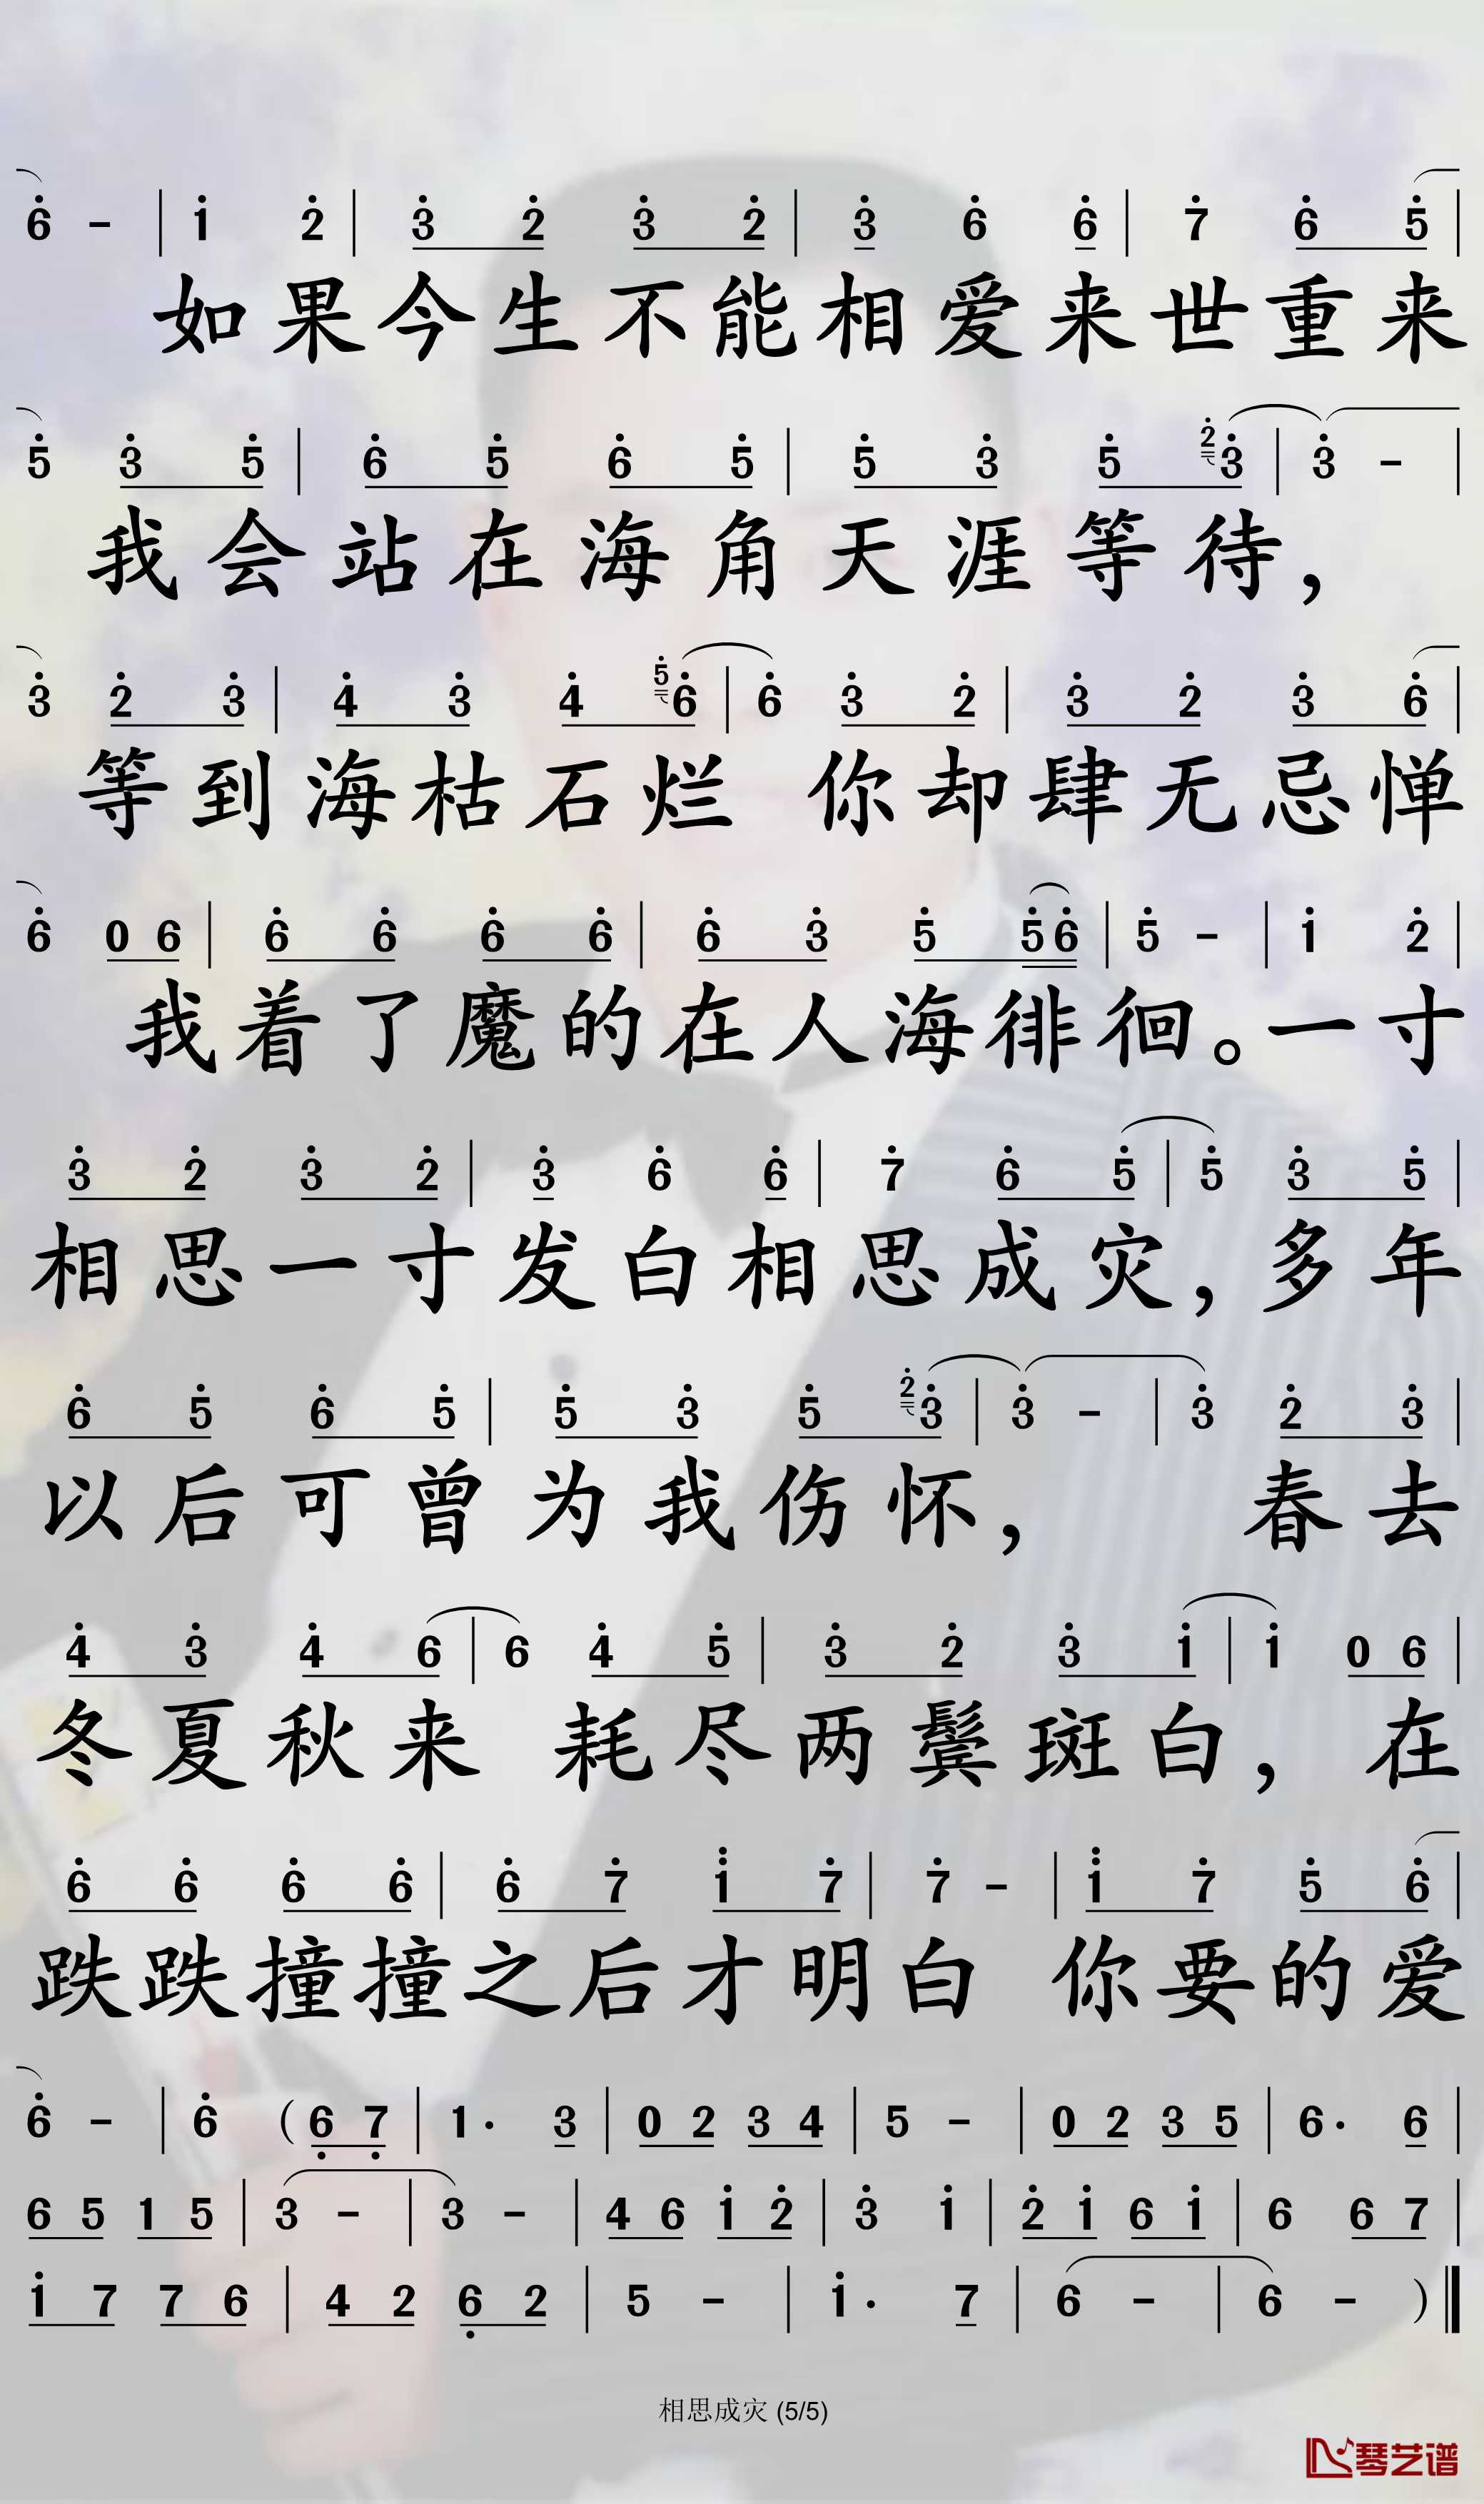 6 - | 1 2 | 3 2 3 2 | 3 6 6 | 7 6 5 |
如果今生不能相爱来世重来
5 3 5 | 6 5 6 5 | 5 3 5 2 3 | 3 - |
我会站在海角天涯等待，
3 2 3 | 4 3 4 5 6 | 6 3 2 | 3 2 3 6 |
等到海枯石烂 你却肆无忌惮
6 0 6 | 6 6 6 6 | 6 3 5 5 6 | 5 - | 1 2 |
我着了魔的在人海徘徊。一寸
3 2 3 2 | 3 6 6 | 7 6 5 | 5 3 5 |
相思一寸发白相思成灾，多年
6 5 6 5 | 5 3 5 2 3 | 3 - | 3 2 3 |
以后可曾为我伤怀， 春去
4 3 4 6 | 6 4 5 | 3 2 3 1 | 1 0 6 |
冬夏秋来 耗尽两鬓斑白，在
6 6 6 6 | 6 7 1 7 | 7 - | 1 7 5 6 |
跌跌撞撞之后才明白 你要的爱
6 - | 6 (6 7 | 1· 3 | 0 2 3 4 | 5 - | 0 2 3 5 | 6· 6 |
6 5 1 5 | 3 - | 3 - | 4 6 1 2 | 3 1 | 2 1 6 1 | 6 6 7 |
1 7 7 6 | 4 2 6 2 | 5 - | 1· 7 | 6 - | 6 - )‖
相思成灾 (5/5)
琴艺谱